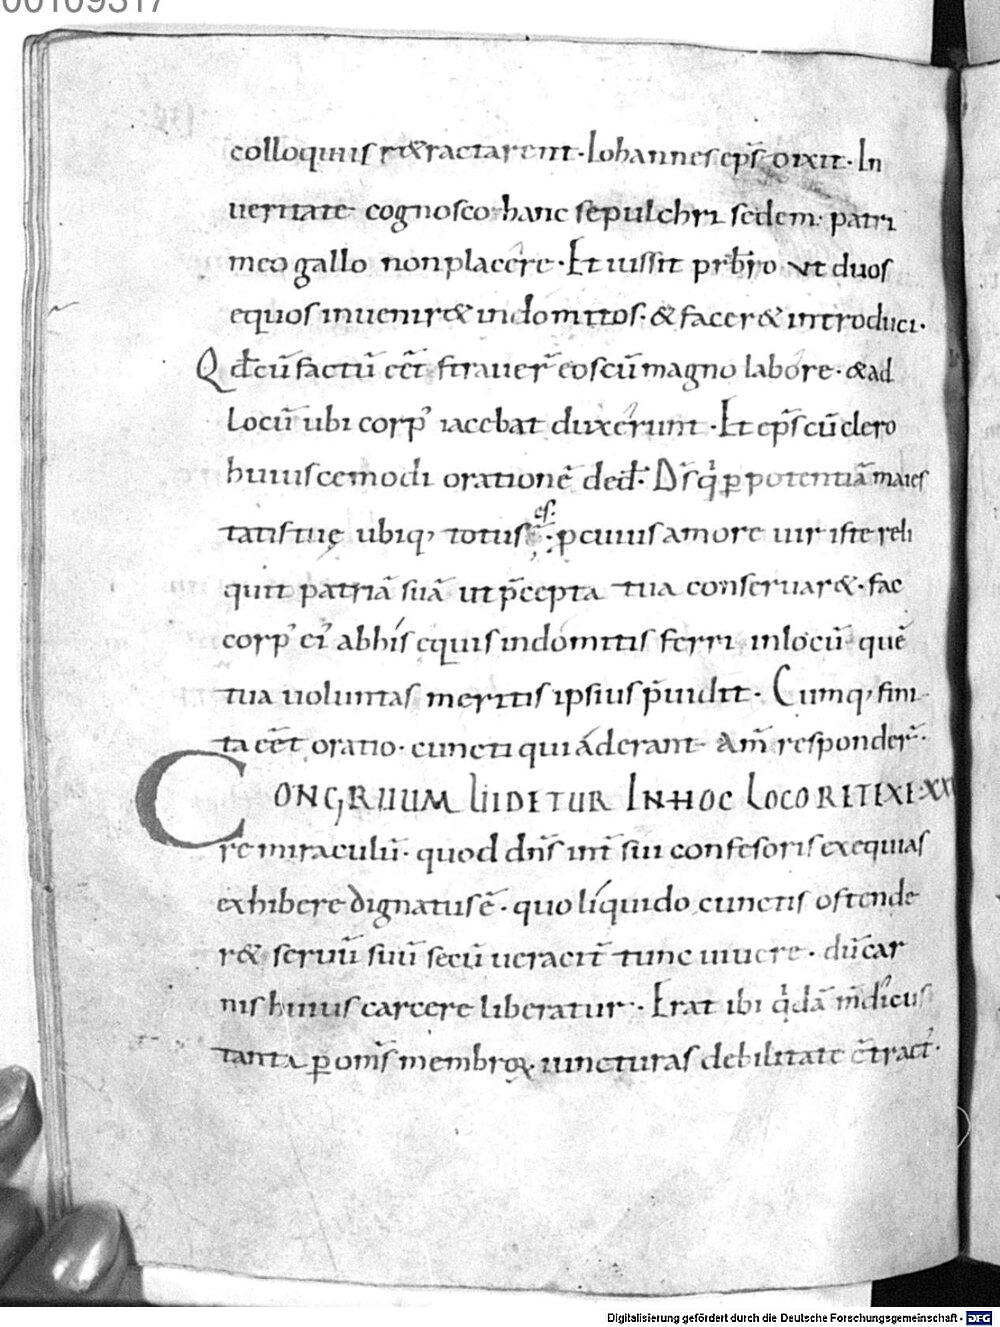 00109317
colloquiis r&ractarent · Iohannes ep̄s dixit · In
ueritate cognosco hanc sepulchri sedem · patri
meo gallo non placere · Et iussit prb̄ro ut duos
equos inuenir& indomitos · & facer& introduci ·
Qd̄ cū factū eēt strauer̄ eos cū magno labore · &ad
locū ubi corp᾽ iacebat duxerunt · Et ep̄s cū clero
huiuscemodi orationē ded̄ · D̄s q̇ ꝑ potentiā maies
tatis tuę ubiq; totus es · ꝓ cuius amore uir iste reli
quit patriā suā ut p̄cepta tua conseruar& · fac
corp᾽ ei᾽ ab his equis indomitis ferri in locū quē
tua uoluntas meritis ipsius p̄uidit · Cumq; fini
ta eēt oratio · cuncti qui aderant Am̄ responder̄ ·
CONGRUUM UIDETUR IN HOC LOCO RETEXE
re miraculū · quod dn̄s int̄ sui confesoris exequias
exhibere dignatus ē · quo liquido cunctis ostende
r& seruū suū secū ueracit̄ tunc uiuere · dū car
nis huius carcere liberatur · Erat ibi q̇dā mendicus
tanta ꝑ om̄s membroꝝ iuncturas debilitate c̄tract᾽ ·
Digitalisierung gefördert durch die Deutsche Forschungsgemeinschaft - DFG